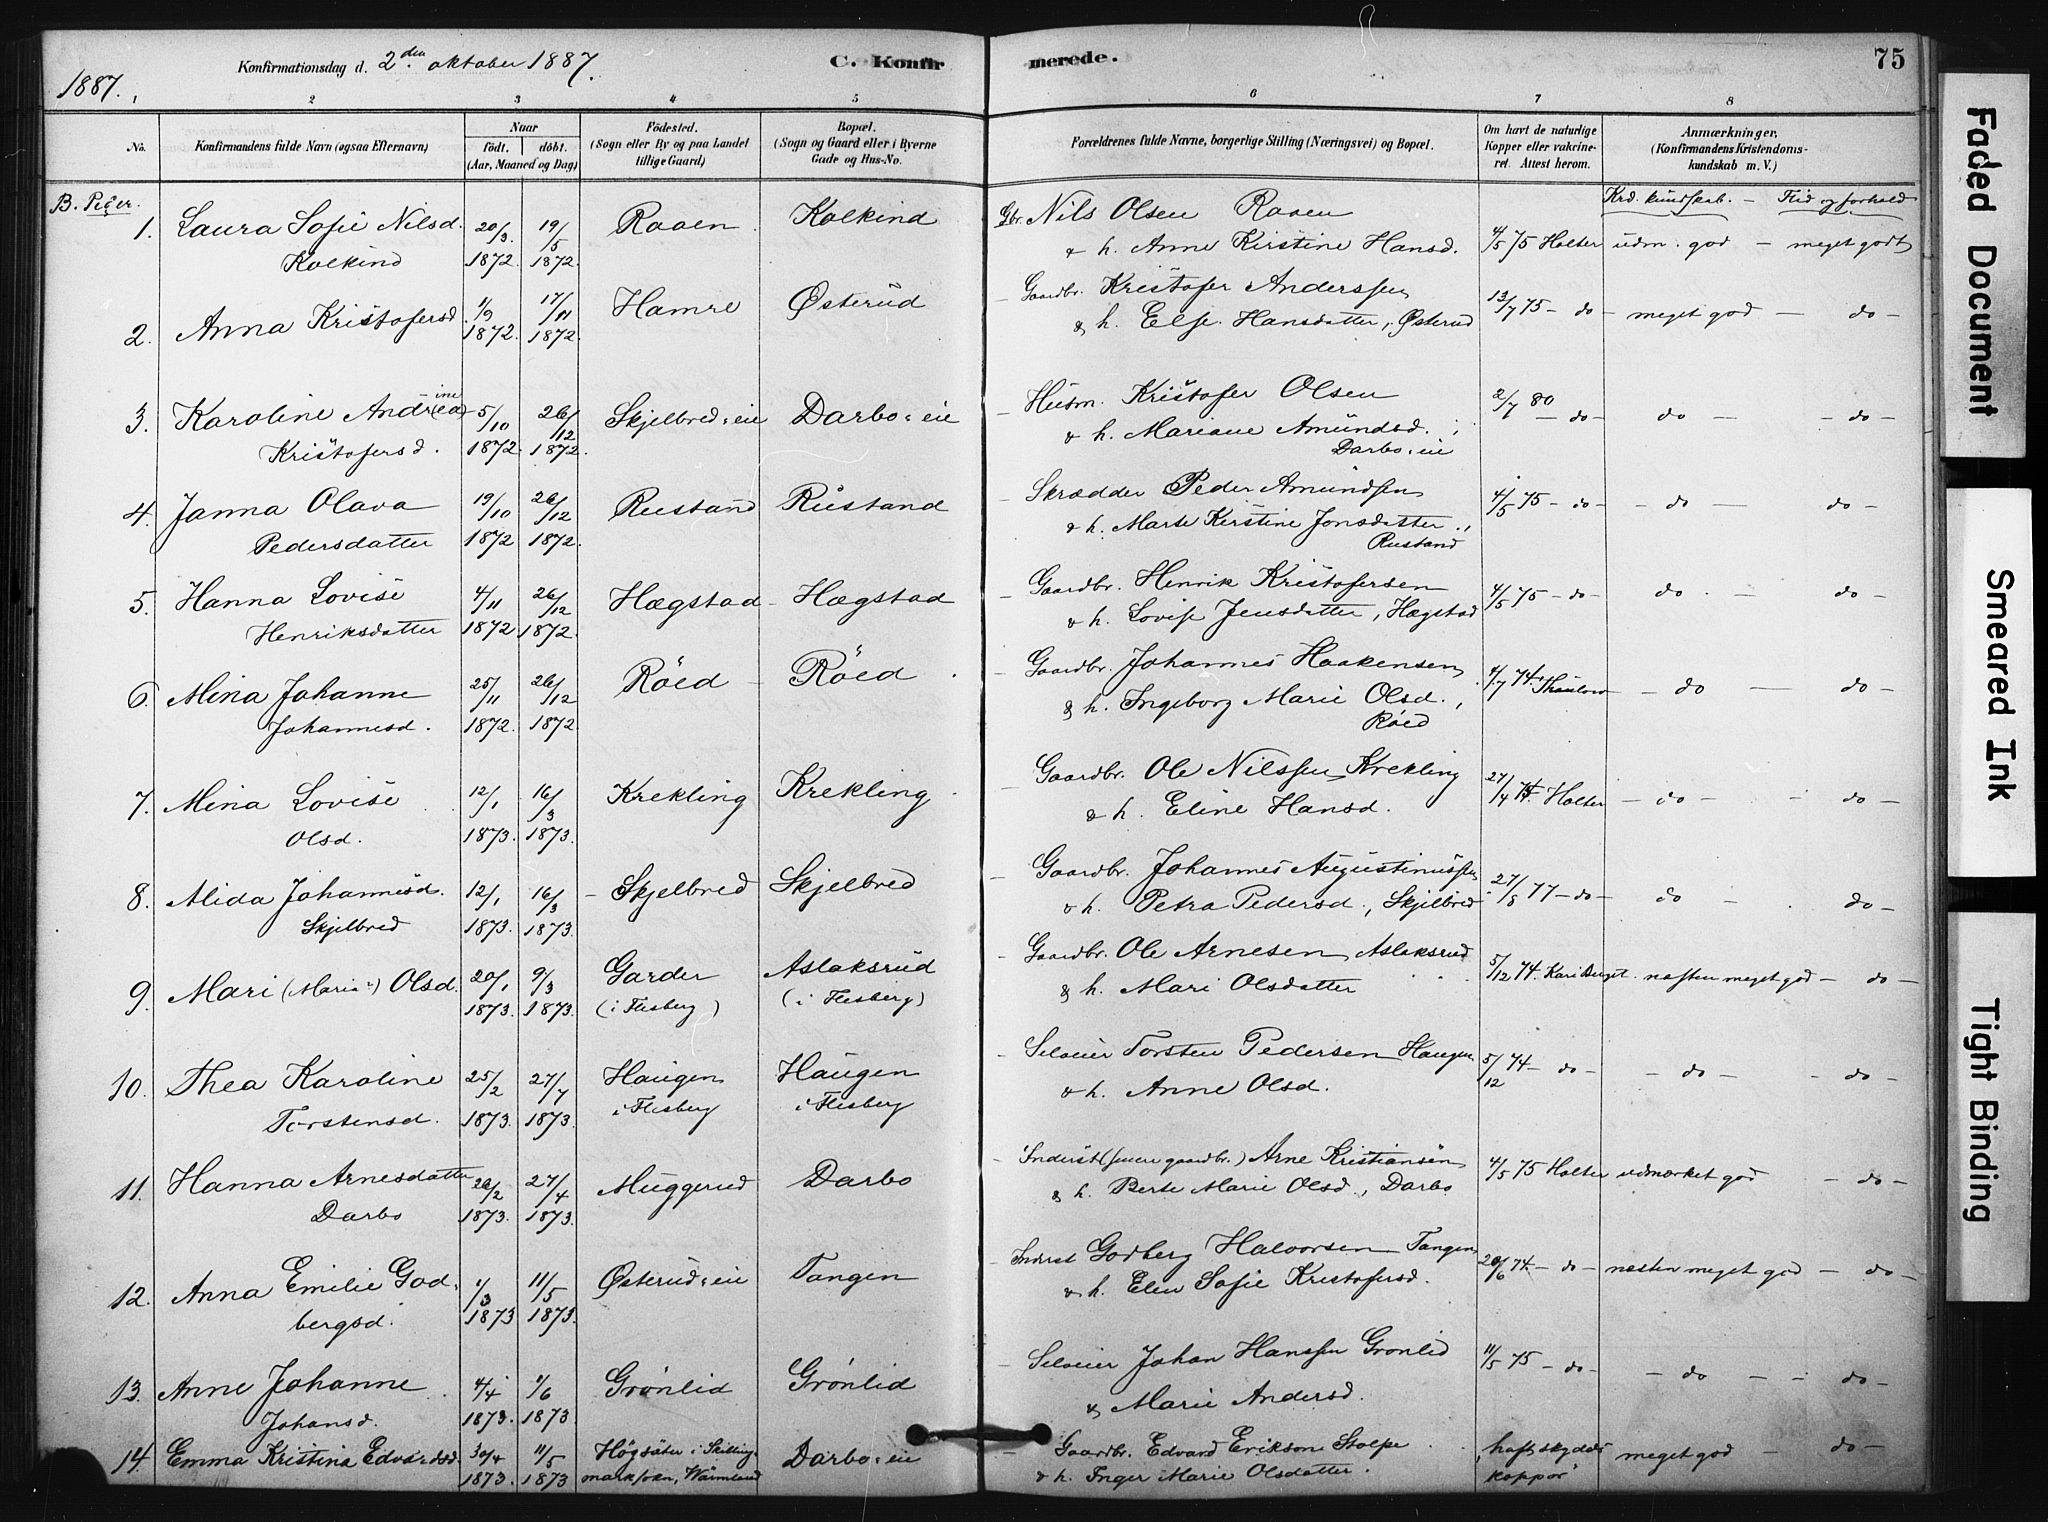 1887.
Konfirmationsdag d. 2den oktober 1887.
C. Konfirmerede.
75
1 2 3 4 5 6 7 8
No.
Konfirmandens fulde Navn (ogsaa Efternavn)
Naar
födt. döbt.
(Aar, Maaned og Dag)
Födested.
(Sogn eller By og paa Landet
tillige Gaard)
Bopæl.
(Sogn og Gaard eller i Byerne
Gade og Hus-No.
Forældrenes fulde Navne, borgerlige Stilling (Næringsvei) og Bopæl.
Om havt de naturlige
Kopper eller vakcine-
ret. Attest herom.
Anmærkninger.
(Konfirmandens Kristendoms-
kundskab m. V.)
B. Piger.
Krd. kundskab. — Flid og forhold
1. Laura Sofie Nilsd. 20/3 19/5 Raaen Kolkind Gbr. Nils Olsen Raaen
Kolkind 1872. 1872. & h. Anne Kirstine Hansd. 4/5 75 Holter udm. god — meget godt
2. Anna Kristofersd. 1/9 17/11 Hamre Østerud Gaardbr. Kristofer Anderssen
1872. 1872. & h. Else Hansdatter, Østerud 13/7 75 — do — meget god — do —
3. Karoline Andrea (ine) 5/10 26/12 Skjelbred-eie Darbo-eie Husm. Kristofer Olsen
Kristofersd. 1872. 1872. & h. Mariane Amundsd., 2/7 80 — do — do — do —
Darbo-eie
4. Janna Olava 19/10 26/12 Rustand Rustand Skrædder Peder Amundsen
Pedersdatter 1872 1872. & h. Marte Kirstine Jonsdatter, 4/5 75 — do — do — do —
Rustand
5. Hanna Lovise 4/11 26/12 Hægstad Hægstad Gaardbr. Henrik Kristofersen
Henriksdatter 1872 1872. & h. Lovise Jensdatter, Hægstad 4/5 75 — do — do — do —
6. Mina Johanne 25/11 26/12 Röed Röed Gaardbr. Johannes Haakensen
Johannesd. 1872. 1872. & h. Ingeborg Marie Olsd., 4/7 74. Thaulow — do — do —
Röed
7. Mina Lovise 12/1 16/3 Krekling Krekling Gaardbr. Ole Nilssen Krekling
Olsd. 1873. 1873. & h. Eline Hansd. 27/4 75 Holter — do — do —
8. Alida Johannesd. 12/1 16/3 Skjelbred Skjelbred Gaardbr. Johannes Augustinussen
Skjelbred 1873. 1873. & h. Petra Pedersd., Skjelbred 27/8 77 — do — do — do —
9. Mari (Maria) Olsd. 20/1 9/3 Garder Aslaksrud Gaardbr. Ole Arnesen Aslaksrud
1873. 1873. (i Flesberg) (i Flesberg) & h. Mari Olsdatter 5/12 74. Kari Berget. næsten meget god — do —
10. Thea Karoline 25/2 27/7 Haugen Haugen Selveier Torsten Pedersen Haugen
Torstensd. 1873. 1873. i Flesberg i Flesberg & h. Anne Olsd. 5/12 74 — do — do — do —
11. Hanna Arnesdatter 26/2 27/4 Muggerud Darbo Inderst (senere gaardbr.) Arne Kristiansen
Darbo 1873. 1873. & h. Berte Marie Olsd., Darbo 4/5 75 Holter udmærket god — do —
12. Anna Emilie God- 1/3 11/5 Østerud-eie Tangen Inderst Godberg Halvorsen Tangen
bergsd. 1873 1873. & h. Elen Sofie Kristofersd. 20/6 74. — do — næsten meget god — do —
13. Anne Johanne 4/4 1/6 Grönlid Grönlid Selveier Johan Hanssen Grönlid
Johansd. 1873. 1873. & Marie Andersd. 11/5 75 — do — do — do —
14. Emma Kristina Edvardsd. 30/4 11/5 Högsäter i Skilling- Darbo-eie Gaardbr. Edvard Erikson Stolpe
1873. 1873 marksokn, Wärmland & h. Inger Marie Olsdatter. "haft skydds koppor" meget god do —
Faded Document
Smeared Ink
Tight Binding